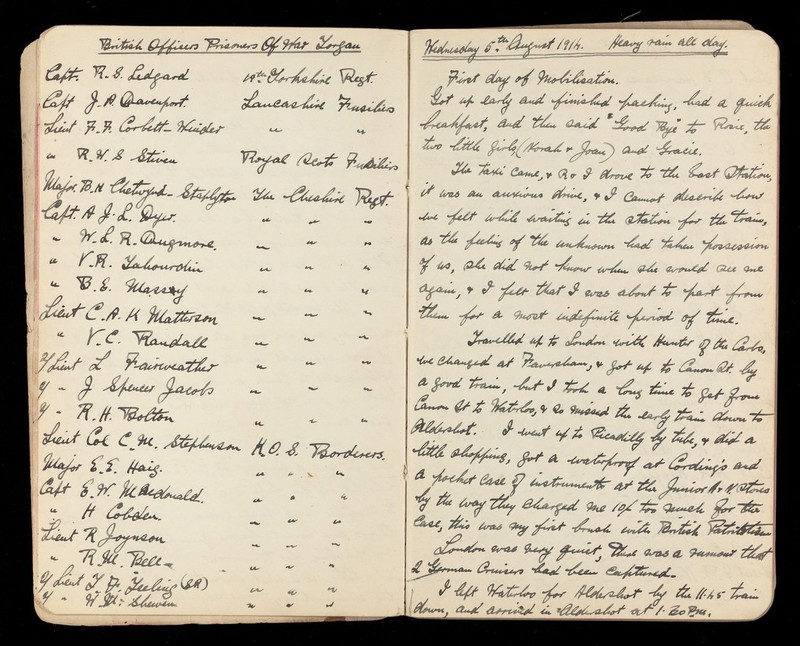 British Officers Prisoners Of War Torgau
Capt. R. S. Ledgard 1st Yorkshire Regt.
Capt J. R. Davenport. Lancashire Fusiliers
Lieut F. F. Corbett-Winder " "
" R. W. S Stiven Royal Scots Fusiliers
Major. B. H Chetwynd-Stapylton The Cheshire Regt.
Capt. A J. L. Dyer. " " "
" W. L. R. Dugmore. " " "
" V. R. Tahourdin " " "
" B. E. Massy " " "
Lieut C. A. K Matterson " " "
" V. C. Randall " " "
2/Lieut L Fairweather " " "
2/ " J Spencer Jacobs " " "
2/ " R. H. Bolton " " "
Lieut Col C. M. Stephenson K. O. S. Borderers.
Major E. E. Haig. " " "
Capt E. W. Macdonald. " " "
" H Cobden. " " "
Lieut R Joynson " " "
" R. M. Bell- " " "
2/ Lieut T. F. Teeling (SR) " " "
2/ " W. M. Shewen " " "
Wednesday 5th August 1914. Heavy rain all day.
First day of Mobilisation.
Got up early and finished packing, had a quick
breakfast, and then said "Good Bye" to Rosie, the
two little girls, (Norah & Joan) and Gracie.
The taxi came, & R & I drove to the East Station,
it was an anxious drive, & I cannot describe how
we felt while waiting in the station for the train,
as the feeling of the unknown had taken possession
of us, she did not know when she would see me
again, & I felt that I was about to part from
them for a most indefinite period of time.
Travelled up to London with Hunter of the Carbs,
we changed at Faversham, & got up to Canon St. by
a good train, but I took a long time to get from
Canon St to Waterloo, & so missed the early train down to
Aldershot. I went up to Picadilly by tube, & did a
little shopping, got a waterproof at Cording's and
a pocket case of instruments at the Junior A. N. Stores
by the way they charged me 10/ too much for the
case, this was my first brush with British Patriotism
London was very quiet, there was a rumour that
2 German Cruisers had been captured-
I left Waterloo for Aldershot by the 11.45 train
down, and arrived in Aldershot at 1.20 P.m.